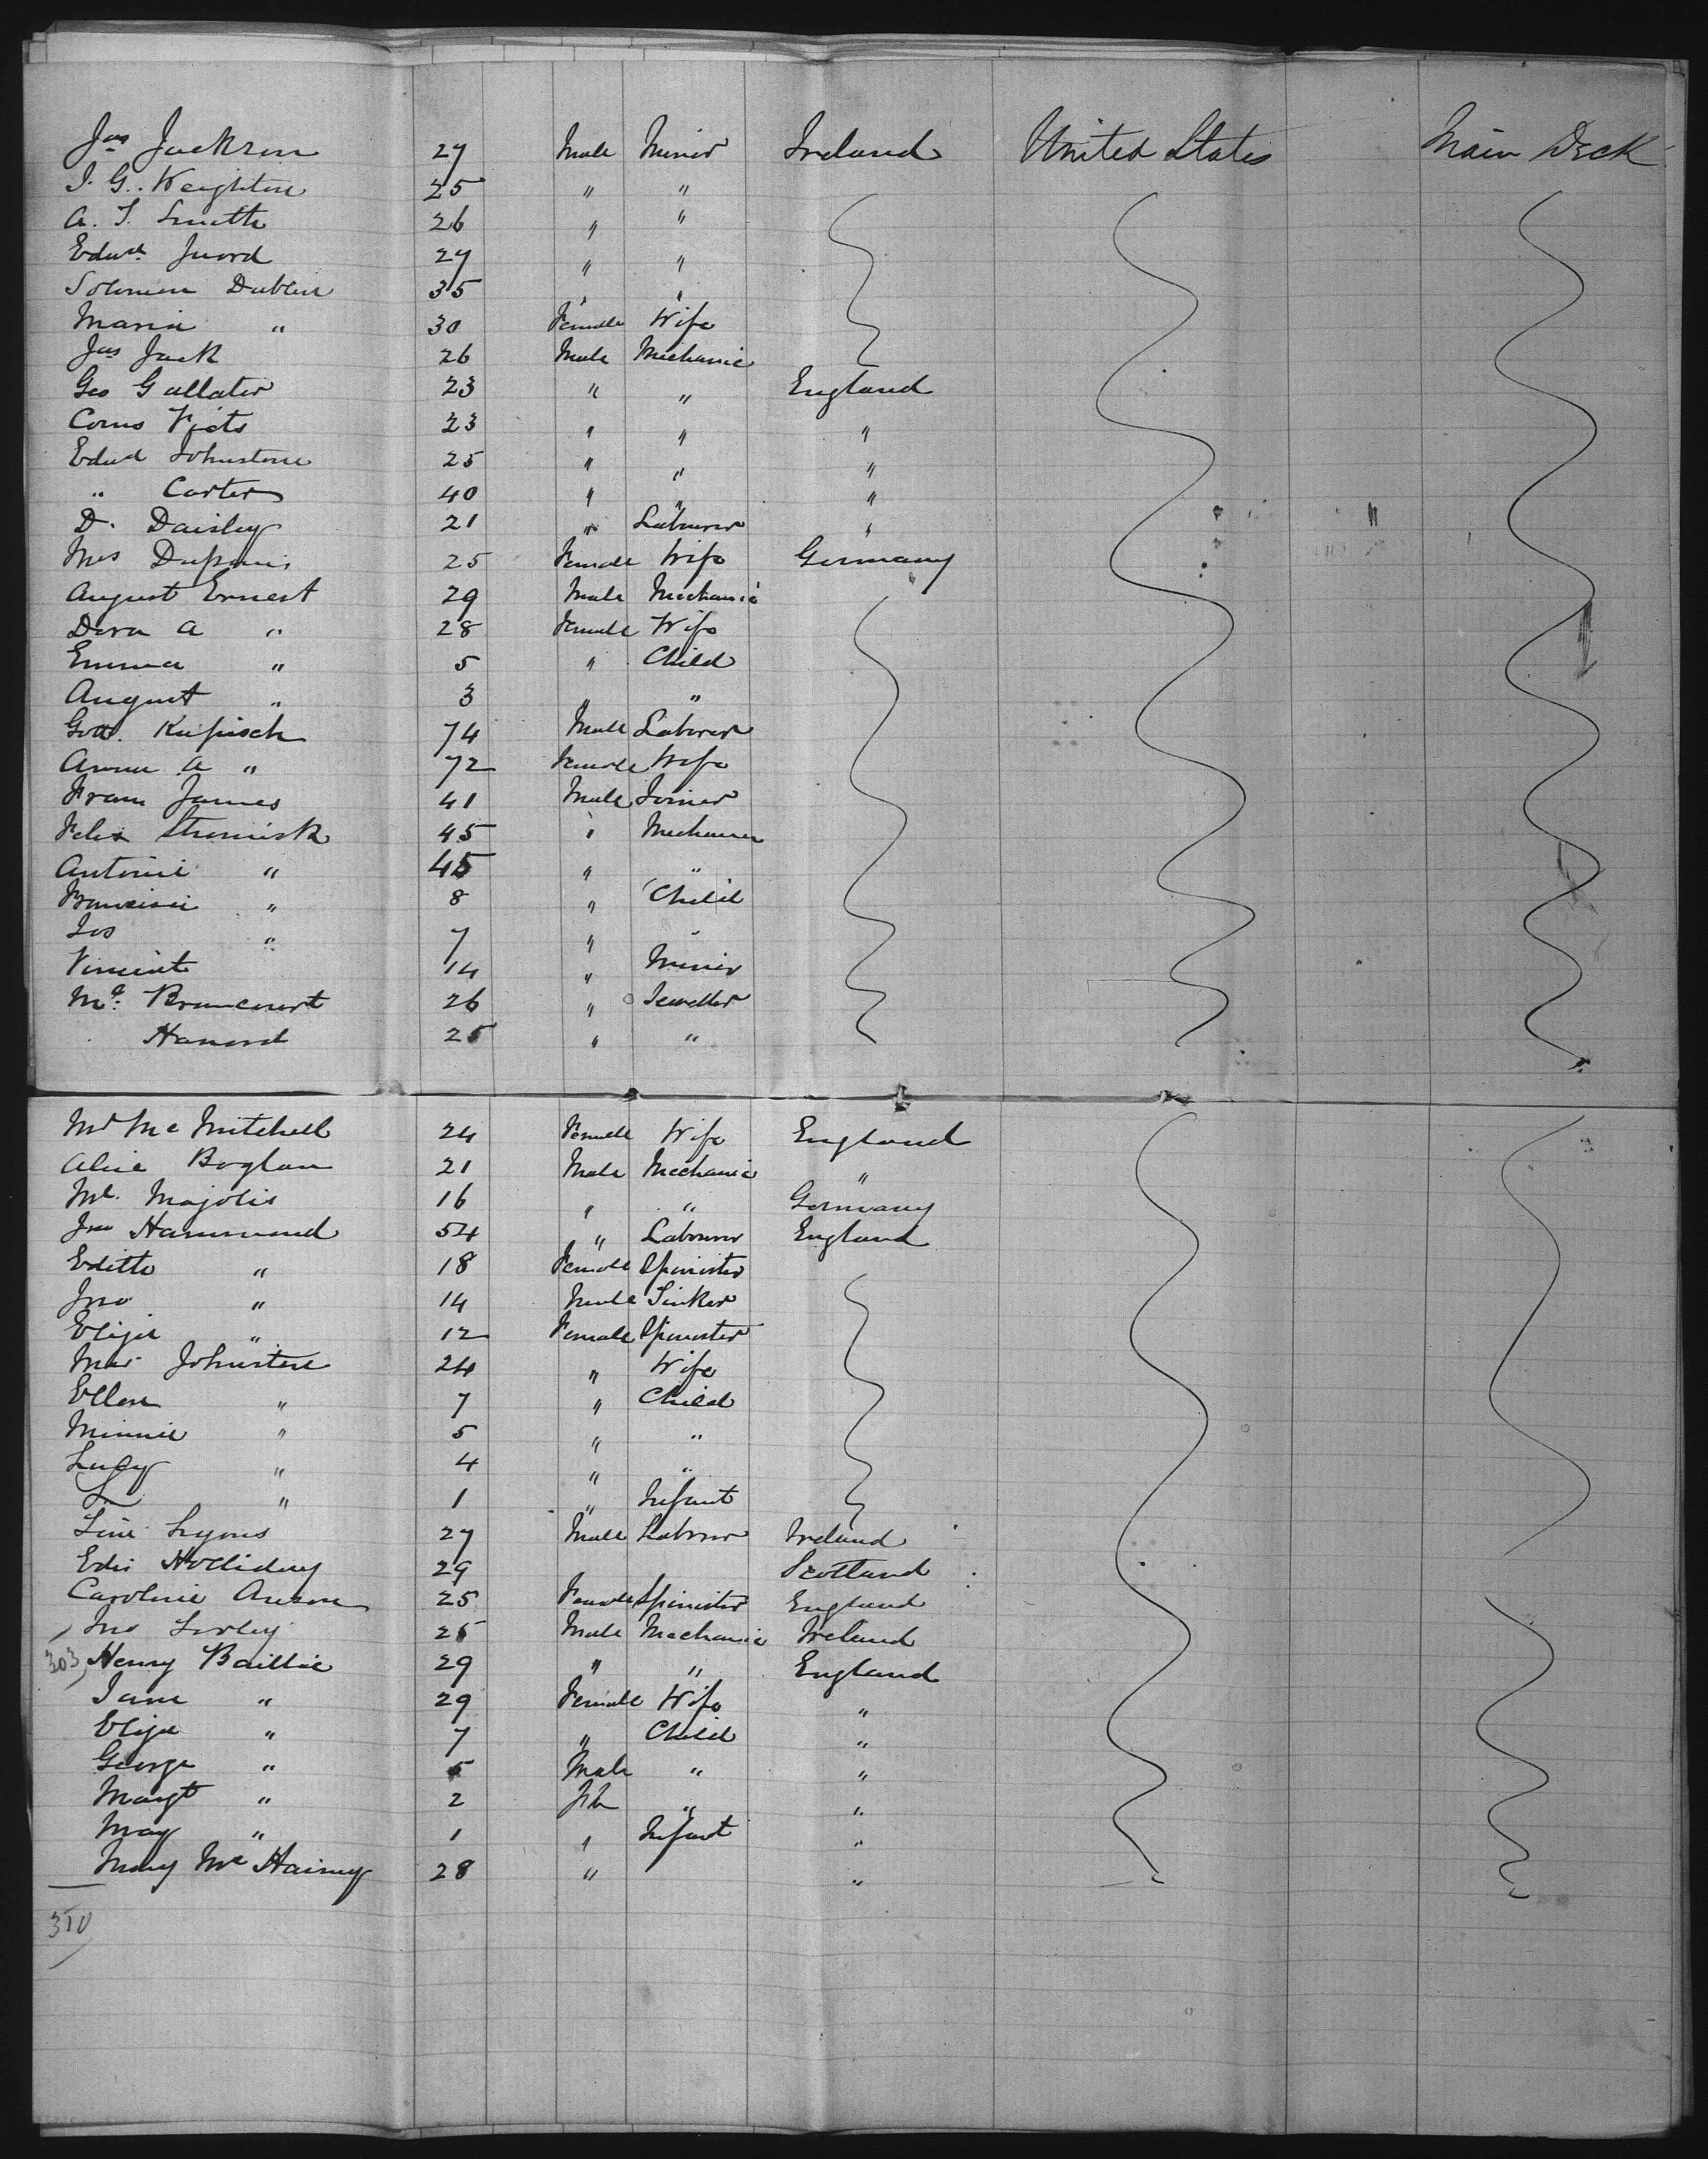 Jas Jackson 27 Male Miner Ireland United States Main Deck
J. G. Weighton 25 " "
A. T. Smith 26 " "
Edwd. 27 " "
Solomon Dublin 35 " "
Maria " 30 Female Wife
Jas Jack 26 Male Mechanic
Geo Gallater 23 " " England
Corns 23 " " "
Edwd Johnstone 25 " " "
" Carter 40 " " "
D. Daisley 21 " Labourer "
Mrs 25 Female Wife Germany
August Ernest 29 Male Mechanic
Dora A " 28 Female Wife
Emma " 5 " Child
August " 3 " "
Gott. Kupisch 74 Male Laborer
Anna A " 72 Female Wife
Fram James 41 Male Joiner
Felix 45 " Mechanic
Antonie " 45 " "
" 8 " Child
Jos " 7 " "
Vincent 14 " Miner
Brancourt 26 " Jeweller
Hanord 25 " "
Mc Mitchell 24 Female Wife England
Alice Boglan 21 Male Mechanic "
Ml. Majolis 16 " " Germany
Jno Hammond 54 " Labourer England
Edith " 18 Female Spinster
Jno " 14 Male Sinker
Eliza " 12 Female Spinster
Mar. Johnston 24 " Wife
Ellen " 7 " Child
Minnie " 5 " "
Lucy " 4 " "
" 1 " Infant
Lyons 27 Male Laborer Ireland
Holliday 29 Scotland
Caroline Anson 25 Female Spinster England
Jno 25 Male Mechanic Ireland
303 Henry Baillie 29 " " England
Jane " 29 Female Wife "
Eliza " 7 " Child "
George " 5 Male " "
Margt " 2 " "
May " 1 " Infant "
Mary Mc Hairny 28 " "
310